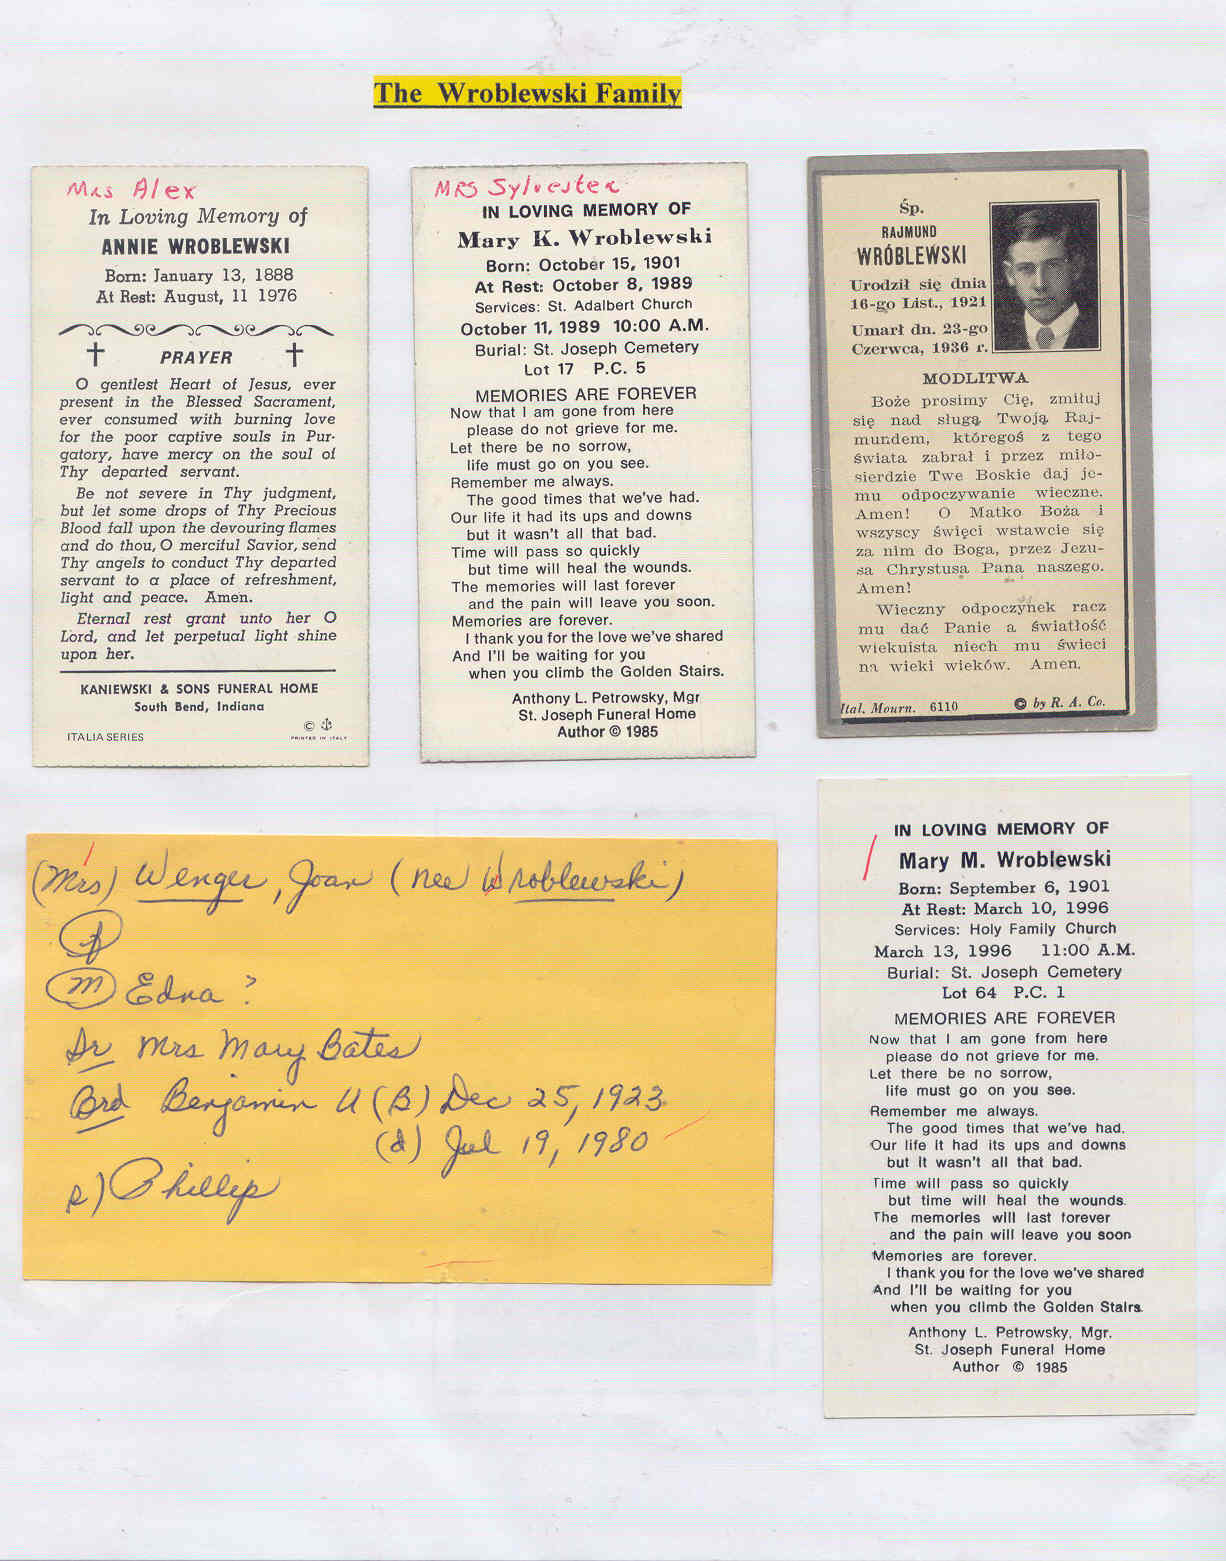 The Wroblewski Family
Mrs Alex
In Loving Memory of
ANNIE WROBLEWSKI
Born: January 13, 1888
At Rest: August, 11 1976
PRAYER
O gentlest Heart of Jesus, ever
present in the Blessed Sacrament,
ever consumed with burning love
for the poor captive souls in Pur-
gatory, have mercy on the soul of
Thy departed servant.
Be not severe in Thy judgment,
but let some drops of Thy Precious
Blood fall upon the devouring flames
and do thou, O merciful Savior, send
Thy angels to conduct Thy departed
servant to a place of refreshment,
light and peace. Amen.
Eternal rest grant unto her O
Lord, and let perpetual light shine
upon her.
KANIEWSKI & SONS FUNERAL HOME
South Bend, Indiana
ITALIA SERIES
©
PRINTED IN ITALY
MRS Sylvester
IN LOVING MEMORY OF
Mary K. Wroblewski
Born: October 15, 1901
At Rest: October 8, 1989
Services: St. Adalbert Church
October 11, 1989 10:00 A.M.
Burial: St. Joseph Cemetery
Lot 17 P.C. 5
MEMORIES ARE FOREVER
Now that I am gone from here
please do not grieve for me.
Let there be no sorrow,
life must go on you see.
Remember me always.
The good times that we've had.
Our life it had its ups and downs
but it wasn't all that bad.
Time will pass so quickly
but time will heal the wounds.
The memories will last forever
and the pain will leave you soon.
Memories are forever.
I thank you for the love we've shared
And I'll be waiting for you
when you climb the Golden Stairs.
Anthony L. Petrowsky, Mgr
St. Joseph Funeral Home
Author © 1985
Śp.
RAJMUND
WRÓBLEWSKI
Urodził się dnia
16-go List., 1921
Umarł dn. 23-go
Czerwca, 1936 r.
MODLITWA
Boże prosimy Cię, zmiłuj
się nad sługą Twoją Raj-
mundem, któregoś z tego
świata zabrał i przez miło-
sierdzie Twe Boskie daj je-
mu odpoczywanie wieczne.
Amen! O Matko Boża i
wszyscy święci wstawcie się
za nim do Boga, przez Jezu-
sa Chrystusa Pana naszego.
Amen!
Wieczny odpoczynek racz
mu dać Panie a światłość
wiekuista niech mu świeci
na wieki wieków. Amen.
Ital. Mourn. 6110 © by R. A. Co.
(Mrs) Wenger, Joan (nee Wroblewski)
f
m Edna ?
Sr Mrs Mary Bates
Brd Benjamin U (B) Dec 25, 1923
(d) Jul 19, 1980
s) Phillip
IN LOVING MEMORY OF
Mary M. Wroblewski
Born: September 6, 1901
At Rest: March 10, 1996
Services: Holy Family Church
March 13, 1996 11:00 A.M.
Burial: St. Joseph Cemetery
Lot 64 P.C. 1
MEMORIES ARE FOREVER
Now that I am gone from here
please do not grieve for me.
Let there be no sorrow,
life must go on you see.
Remember me always.
The good times that we've had.
Our life It had its ups and downs
but it wasn't all that bad.
Time will pass so quickly
but time will heal the wounds.
The memories will last forever
and the pain will leave you soon
Memories are forever.
I thank you for the love we've shared
And I'll be waiting for you
when you climb the Golden Stairs.
Anthony L. Petrowsky, Mgr.
St. Joseph Funeral Home
Author © 1985